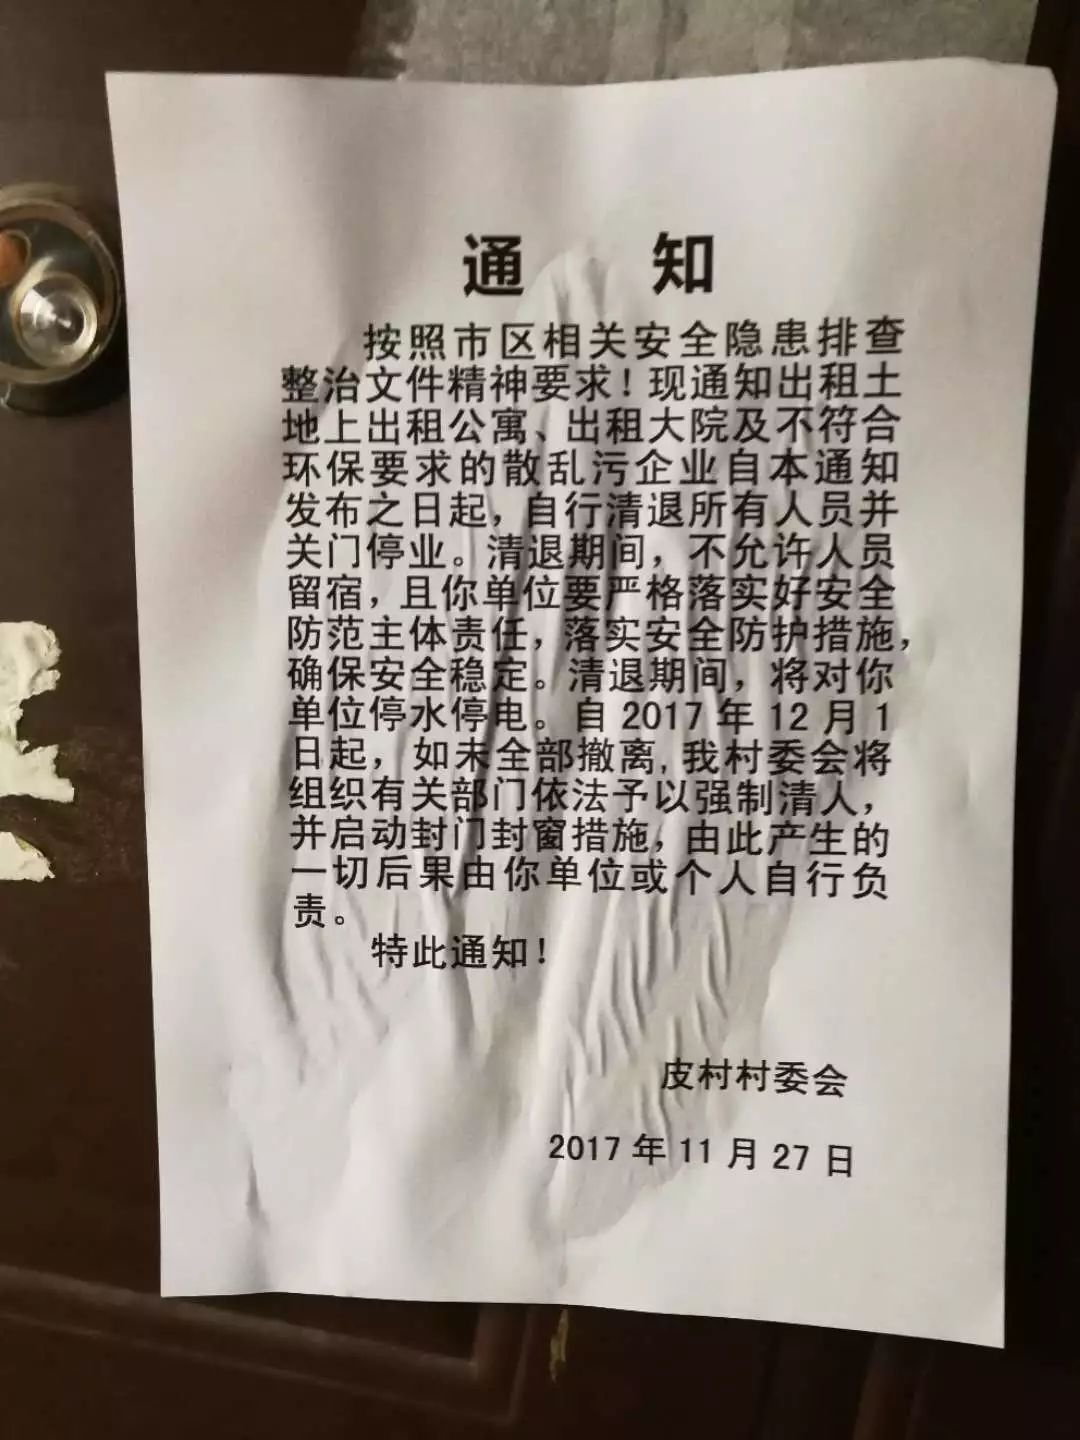 通 知
按照市区相关安全隐患排查
整治文件精神要求！现通知出租土
地上出租公寓、出租大院及不符合
环保要求的散乱污企业自本通知
发布之日起，自行清退所有人员并
关门停业。清退期间，不允许人员
留宿，且你单位要严格落实好安全
防范主体责任，落实安全防护措施，
确保安全稳定。清退期间，将对你
单位停水停电。自 2017 年 12 月 1
日起，如未全部撤离，我村委会将
组织有关部门依法予以强制清人，
并启动封门封窗措施，由此产生的
一切后果由你单位或个人自行负
责。
特此通知！
皮村村委会
2017 年 11 月 27 日